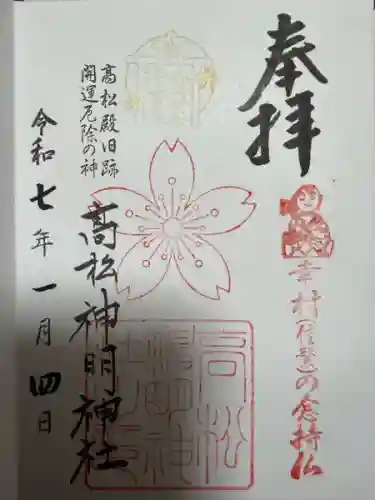 奉拝
幸村信繁の念持仏
高松殿旧跡
開運厄除の神
高松神明神社
令和七年一月四日